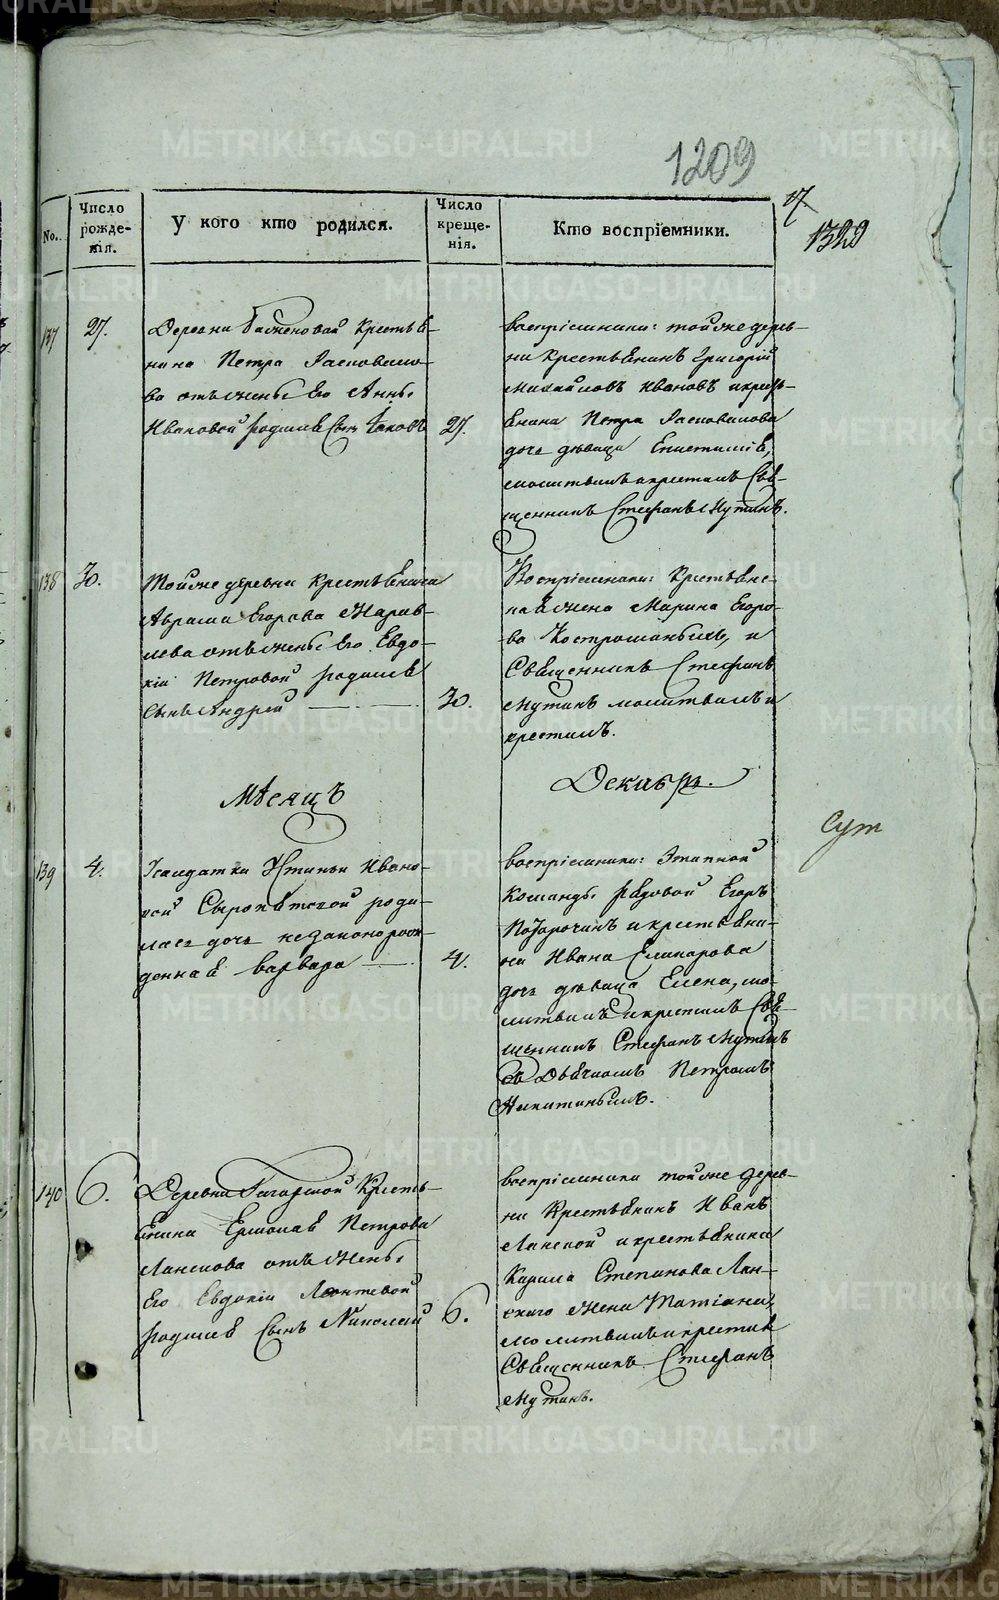 1209
17.
1329
No.
Число рожде-нія.
У кого кто родился.
Число креще-нія.
Кто воспріемники.
137
27.
Деревни Баженовой крестья-
нина Петра
ва отъ жены Его Анны
Ивановой родился Сынъ Іаковъ
27.
воспріемники: тойже дерев-
ни крестьянинъ Григорій
Михайловъ Ивановъ и крес-
янина Петра
дочь дѣвица Епистимія,
молитвилъ и крестилъ Свя-
щенникъ Стефанъ Мутинъ.
138
30.
Тойже деревни крестьянина
Авраама Егорова Журав-
лева отъ жены Его Евдо-
кіи Петровой родился
Сынъ Андрей
30.
Воспріемники: Крестьянс-
кая жена Марина Егоро-
ва Костромин, и
Священникъ Стефанъ
Мутинъ молитвилъ и
крестилъ.
Мѣсяцъ
Декабрь.
Сут
139
4.
Солдатки Устиньи Ивано-
вой Сыропятской роди-
лась дочь незаконорож-
денная Варвара
4.
воспріемники: Этапной
Команды рядовой Егоръ
и крестьяни-
на Ивана
дочь дѣвица Елена, мо-
литвилъ и крестилъ Свя-
щенникъ Стефанъ Мутинъ
съ Дьячкомъ Петромъ
Никитинымъ.
140
6.
Деревни Гагарской Кресть-
янина Ермолая Петрова
Лански отъ жены
Его Евдокіи Леонтьевой
родился Сынъ Николай
6.
воспріемники тойже дерев-
ни Крестьянинъ Иванъ
Ланской и крестьянина
Кирила Степанова Лан-
скаго жена Татіана,
молитвилъ и крестилъ
Священникъ Стефанъ
Мутинъ.
METRIKI.GASO-URAL.RU